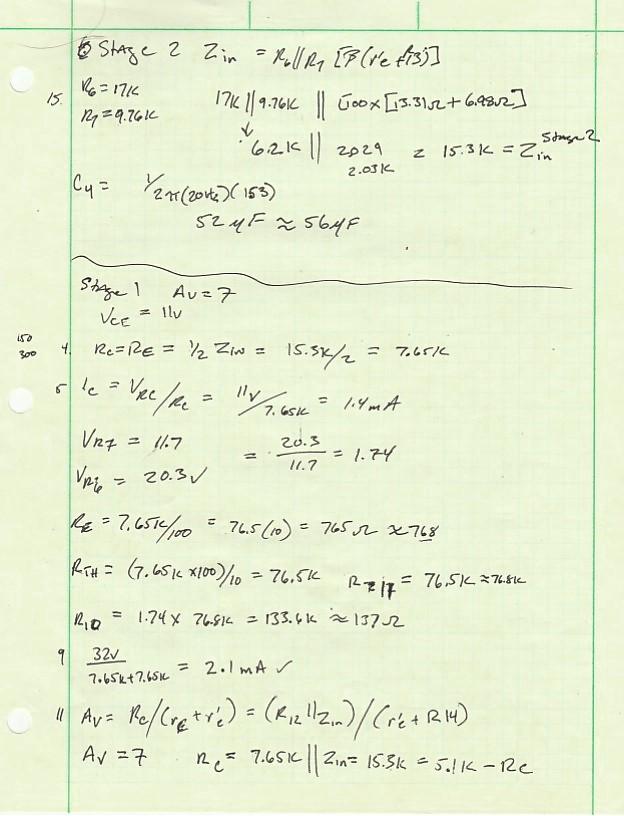 Stage 2 Zin = R6||R7 [β(r'e + r3)]
15. R6 = 17K
R7 = 9.76K
17K || 9.76K || 100x [13.31Ω + 6.98Ω]
↓
6.2K || 2029 = 15.3K = Zin Stage 2
2.03K
C4 = 1/2π(20Hz)(153)
52 µF ≈ 56µF
Stage 1 Av = 7
VCE = 11v
150
300
4. Rc = RE = 1/2 ZIN = 15.3K/2 = 7.65K
5 Ic = VRC/Rc = 11V/7.65K = 1.4mA
VR7 = 11.7
= 20.3/11.7 = 1.74
VR6 = 20.3V
RE = 7.65K/100 = 76.5(10) = 765Ω ≈ 768
RTH = (7.65K x100)/10 = 76.5K = 76.5K ≈ 76.8K
R10 = 1.74 x 76.8K = 133.6K ≈ 137Ω
9 32V/7.65K+7.65K = 2.1mA ✓
11 Av = Rc/(rE + r'e) = (R12||Zin)/(r'e + R14)
Av = 7 Rc = 7.65K || Zin = 15.3K = 5.1K - Rc